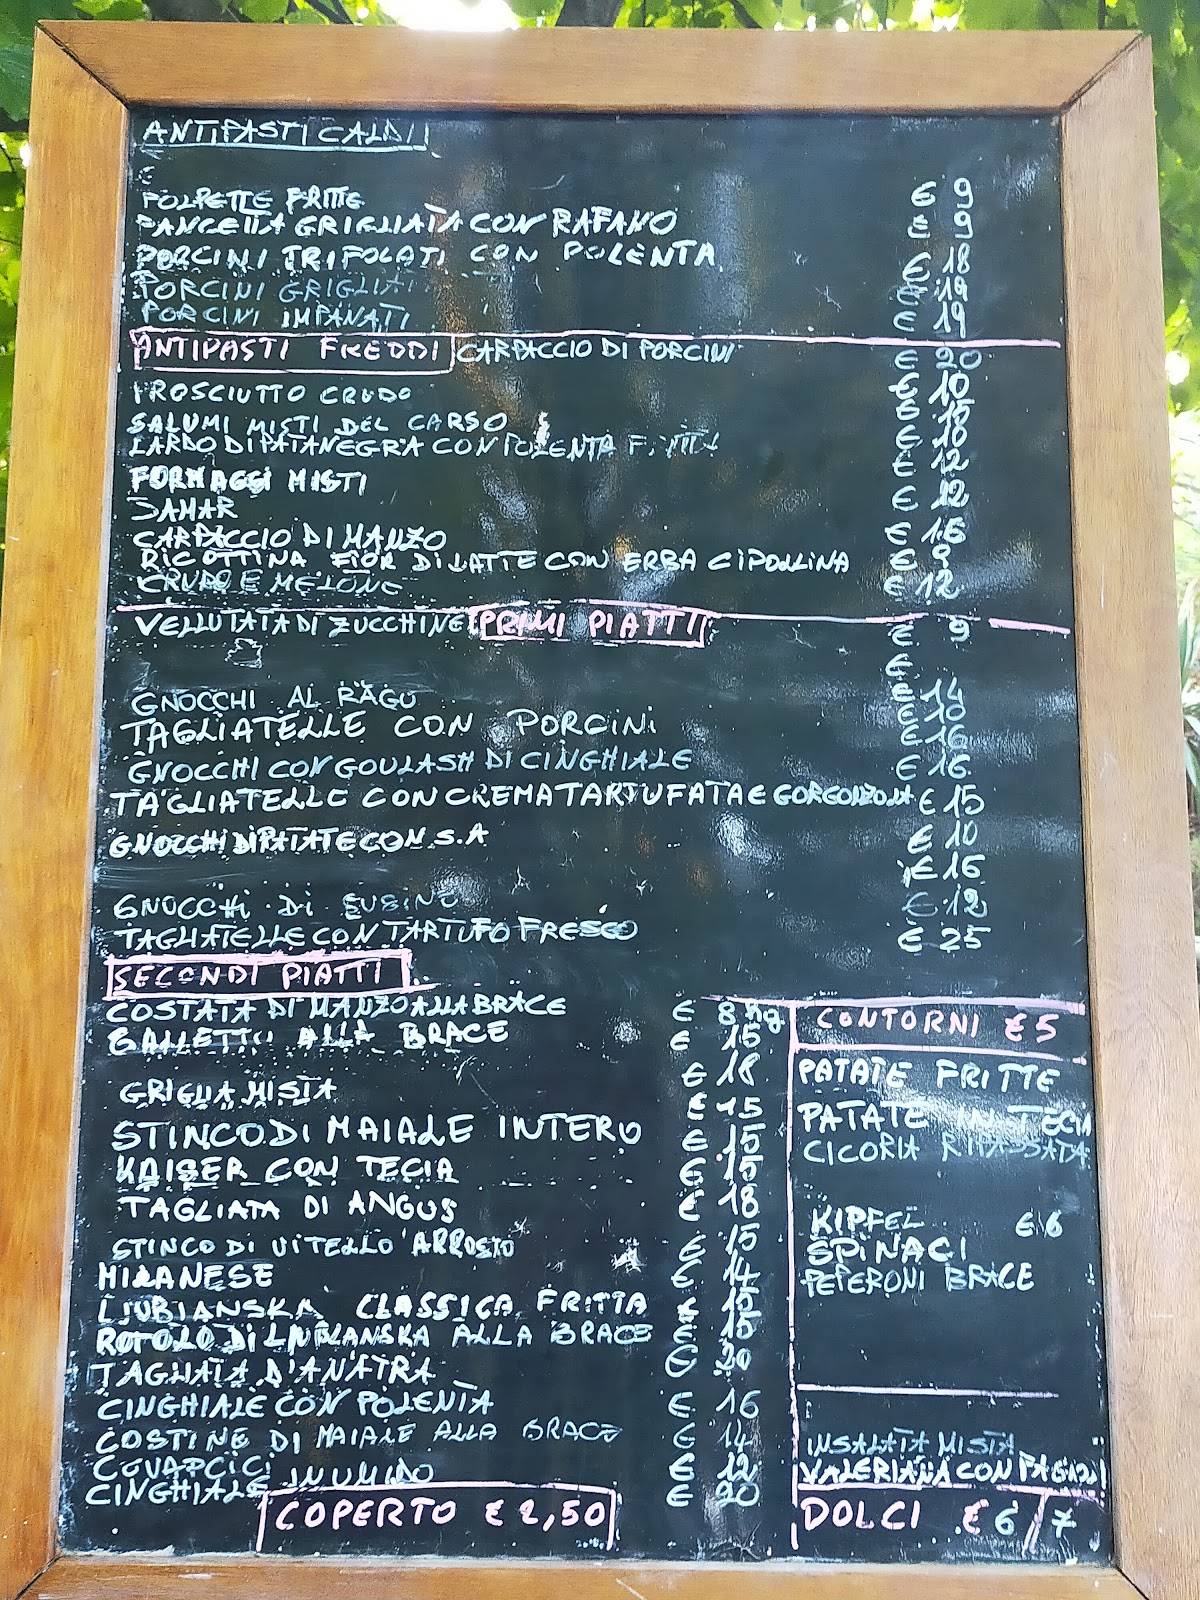 ANTIPASTI CALDI
POLPETTE FRITTE € 9
PANCETTA GRIGLIATA CON RAFANO € 9
PORCINI TRIFOLATI CON POLENTA € 18
PORCINI GRIGLIATI € 19
PORCINI IMPANATI € 19
ANTIPASTI FREDDI CARPACCIO DI PORCINI € 20
PROSCIUTTO CRUDO € 10
SALUMI MISTI DEL CARSO € 15
LARDO DI PATANEGRA CON POLENTA FRITTA € 10
FORMAGGI MISTI € 12
JAMAR € 12
CARPACCIO DI MANZO € 15
RICOTTINA FIOR DI LATTE CON ERBA CIPOLLINA € 9
CRUDO E MELONE € 12
VELLUTATA DI ZUCCHINE PRIMI PIATTI € 9
€
GNOCCHI AL RAGU € 14
€ 10
TAGLIATELLE CON PORCINI € 16
GNOCCHI CON GOULASH DI CINGHIALE € 16
TAGLIATELLE CON CREMA TARTUFATA E GORGONZOLA € 15
GNOCCHI DI PATATE CON S.A € 10
€ 16
GNOCCHI DI SUSINE € 12
TAGLIATELLE CON TARTUFO FRESCO € 25
SECONDI PIATTI
COSTATA DI MANZO ALLA BRACE € 8 hg
GALLETTO ALLA BRACE € 15
GRIGLIA MISTA € 18
€ 15
STINCO DI MAIALE INTERO € 15
KAISER CON TECIA € 15
TAGLIATA DI ANGUS € 18
STINCO DI VITELLO ARROSTO € 15
MILANESE € 14
LJUBIANSKA CLASSICA FRITTA € 15
ROTOLO DI LJUBLANSKA ALLA BRACE € 15
TAGLIATA D'ANATRA € 20
CINGHIALE CON POLENTA € 16
COSTINE DI MAIALE ALLA BRACE € 14
CEVAPCICI € 12
CINGHIALE IN UMIDO € 20
COPERTO € 2,50
CONTORNI € 5
PATATE FRITTE
PATATE IN TECIA
CICORIA RIPASSATA
KIPFEL € 6
SPINACI
PEPERONI BRACE
INSALATA MISTA
VALERIANA CON FAGIOLI
DOLCI € 6/7